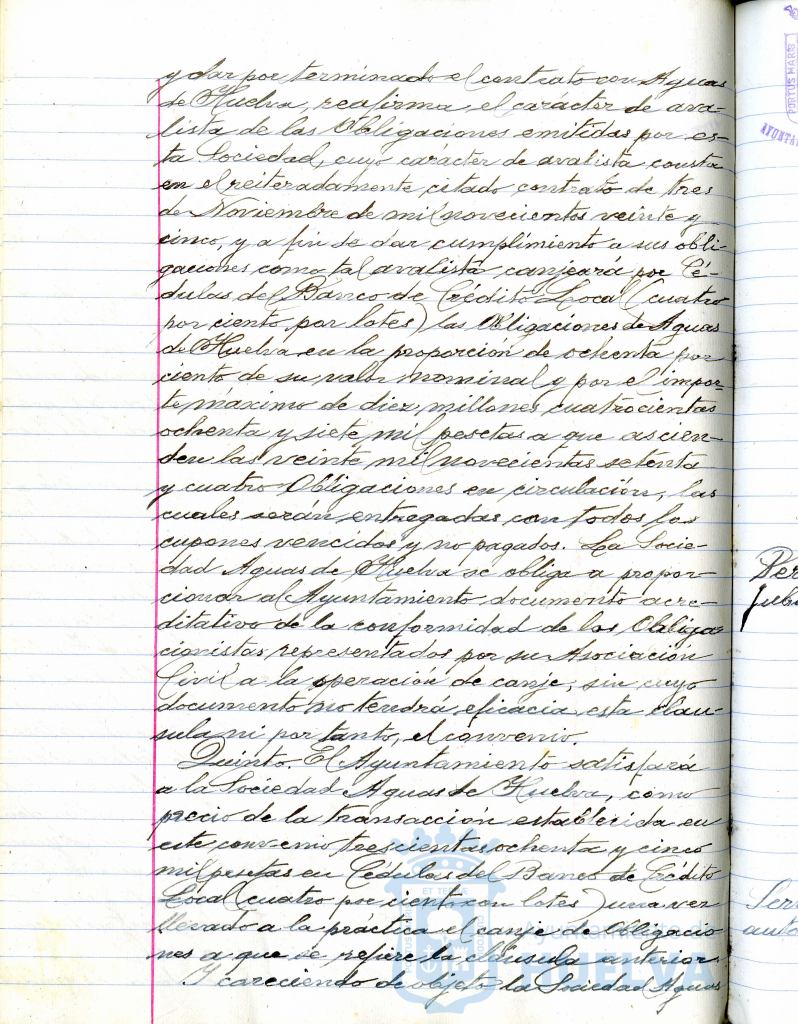 y dar por terminado el contrato con Aguas
de Huelva, reafirma el carácter de ava-
lista de las Obligaciones emitidas por es-
ta Sociedad, cuyo carácter de avalista consta
en el reiteradamente citado contrato de tres
de Noviembre de mil novecientos veinte y
cinco, y a fin de dar cumplimiento a sus obli-
gaciones como tal avalista canjeará por Cé-
dulas del Banco de Crédito Local (cuatro
por ciento por lotes) las Obligaciones de Aguas
de Huelva en la proporción de ochenta por
ciento de su valor nominal y por el impor-
te máximo de diez millones cuatrocientas
ochenta y siete mil pesetas a que ascien-
den las veinte mil novecientas setenta
y cuatro Obligaciones en circulación, las
cuales serán entregadas con todos los
cupones vencidos y no pagados. La Socie-
dad Aguas de Huelva se obliga a propor-
cionar al Ayuntamiento documento acre-
ditativo de la conformidad de los Obliga
cionistas representados por su Asociación
Civil a la operación de canje, sin cuyo
documento no tendrá eficacia esta cláu-
sula ni por tanto, el convenio.
Quinto. El Ayuntamiento satisfará
a la Sociedad Aguas de Huelva, como
precio de la transacción establecida en
este convenio trescientas ochenta y cinco
mil pesetas en Cédulas del Banco de Crédito
Local (cuatro por ciento con lotes) una vez
llevado a la práctica el canje de Obligacio
nes a que se refiere la cláusula anterior.
Y careciendo de objeto la Sociedad Aguas
PORTUS MARIS
AYUNTA
Per
jubi
Serv
auto
Ayuntamiento de
HUELVA